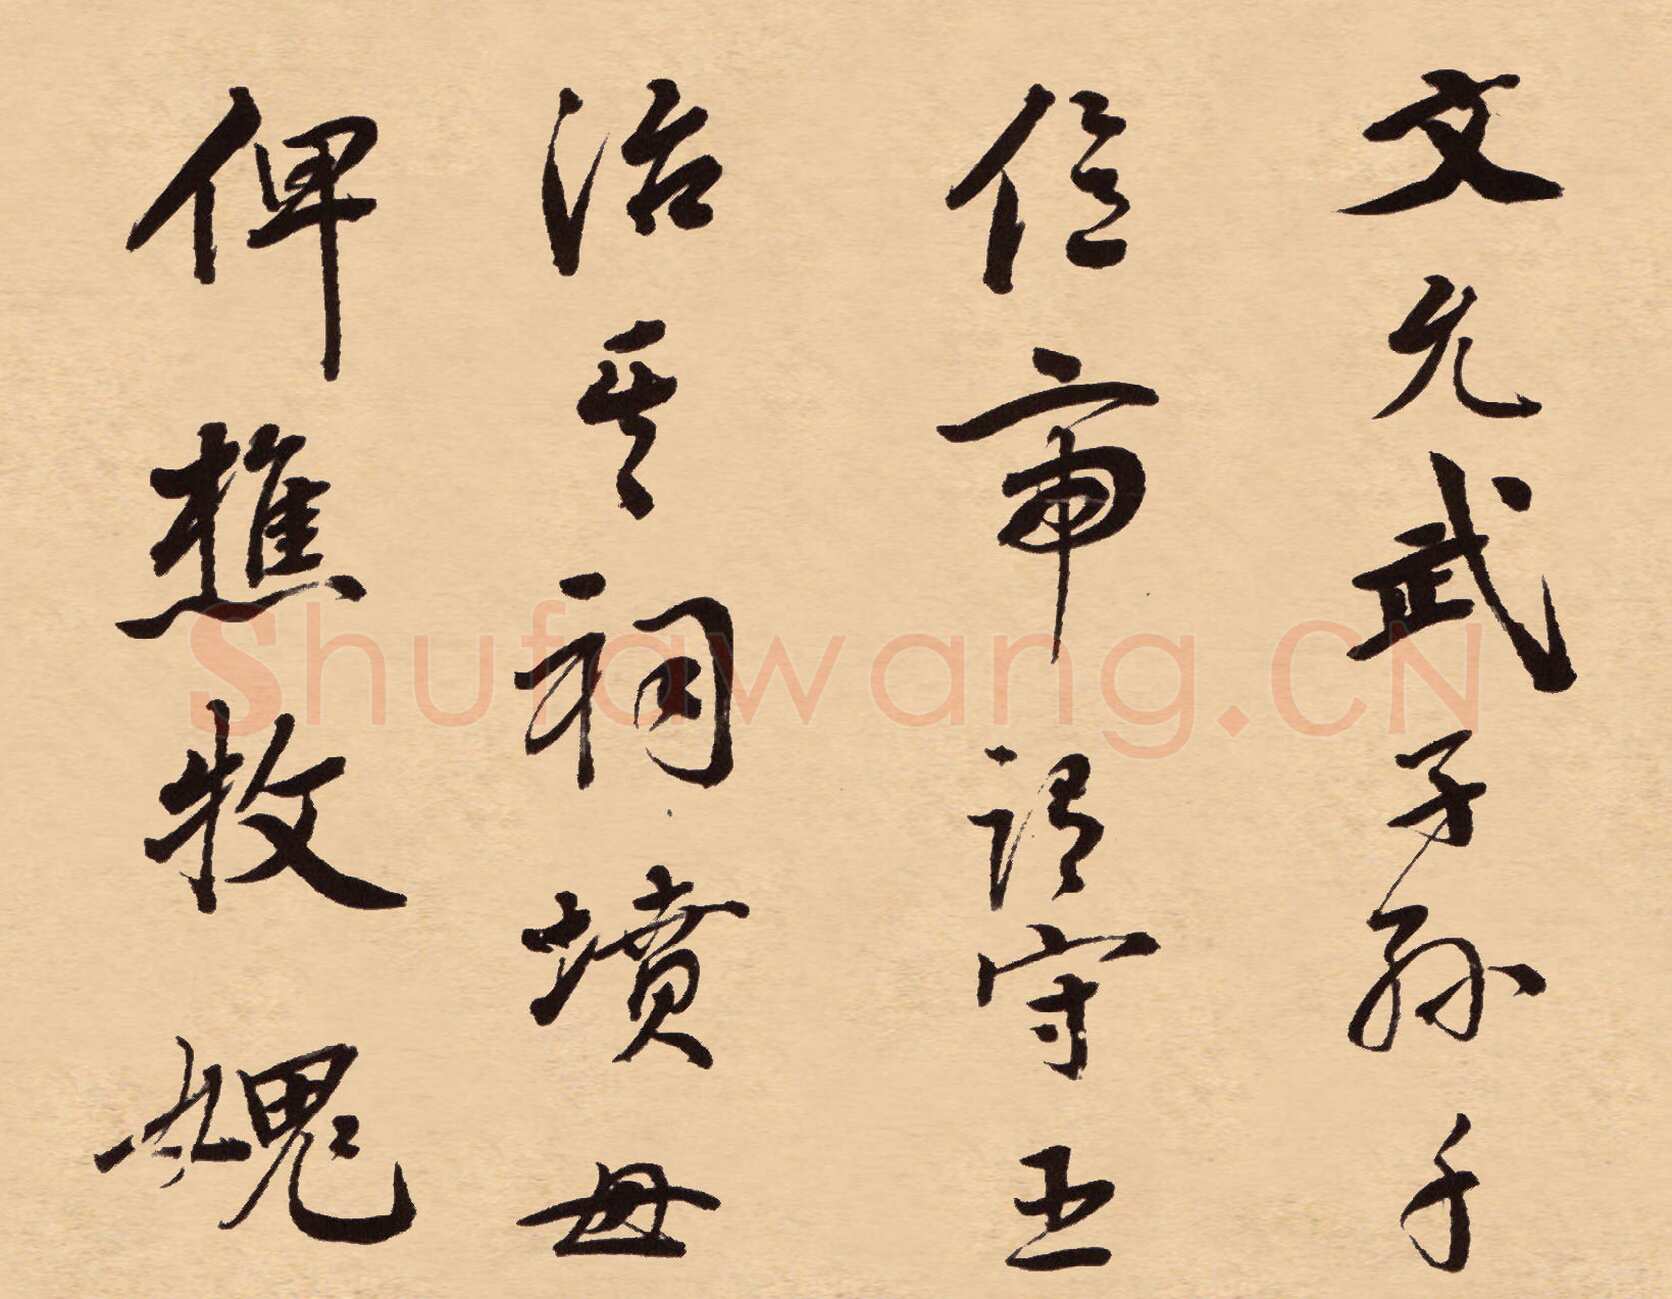 文允武子孫千
億帝謂守臣
治其祠墳毋
俾樵牧媿
Shufawang.CN